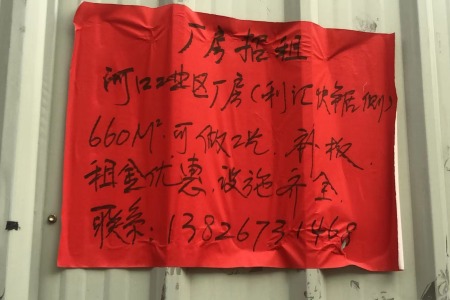 厂房招租
河口工业区厂房(利汇 侧)
660M²可做 补板
租金优惠.设施齐全.
联系:13826731468